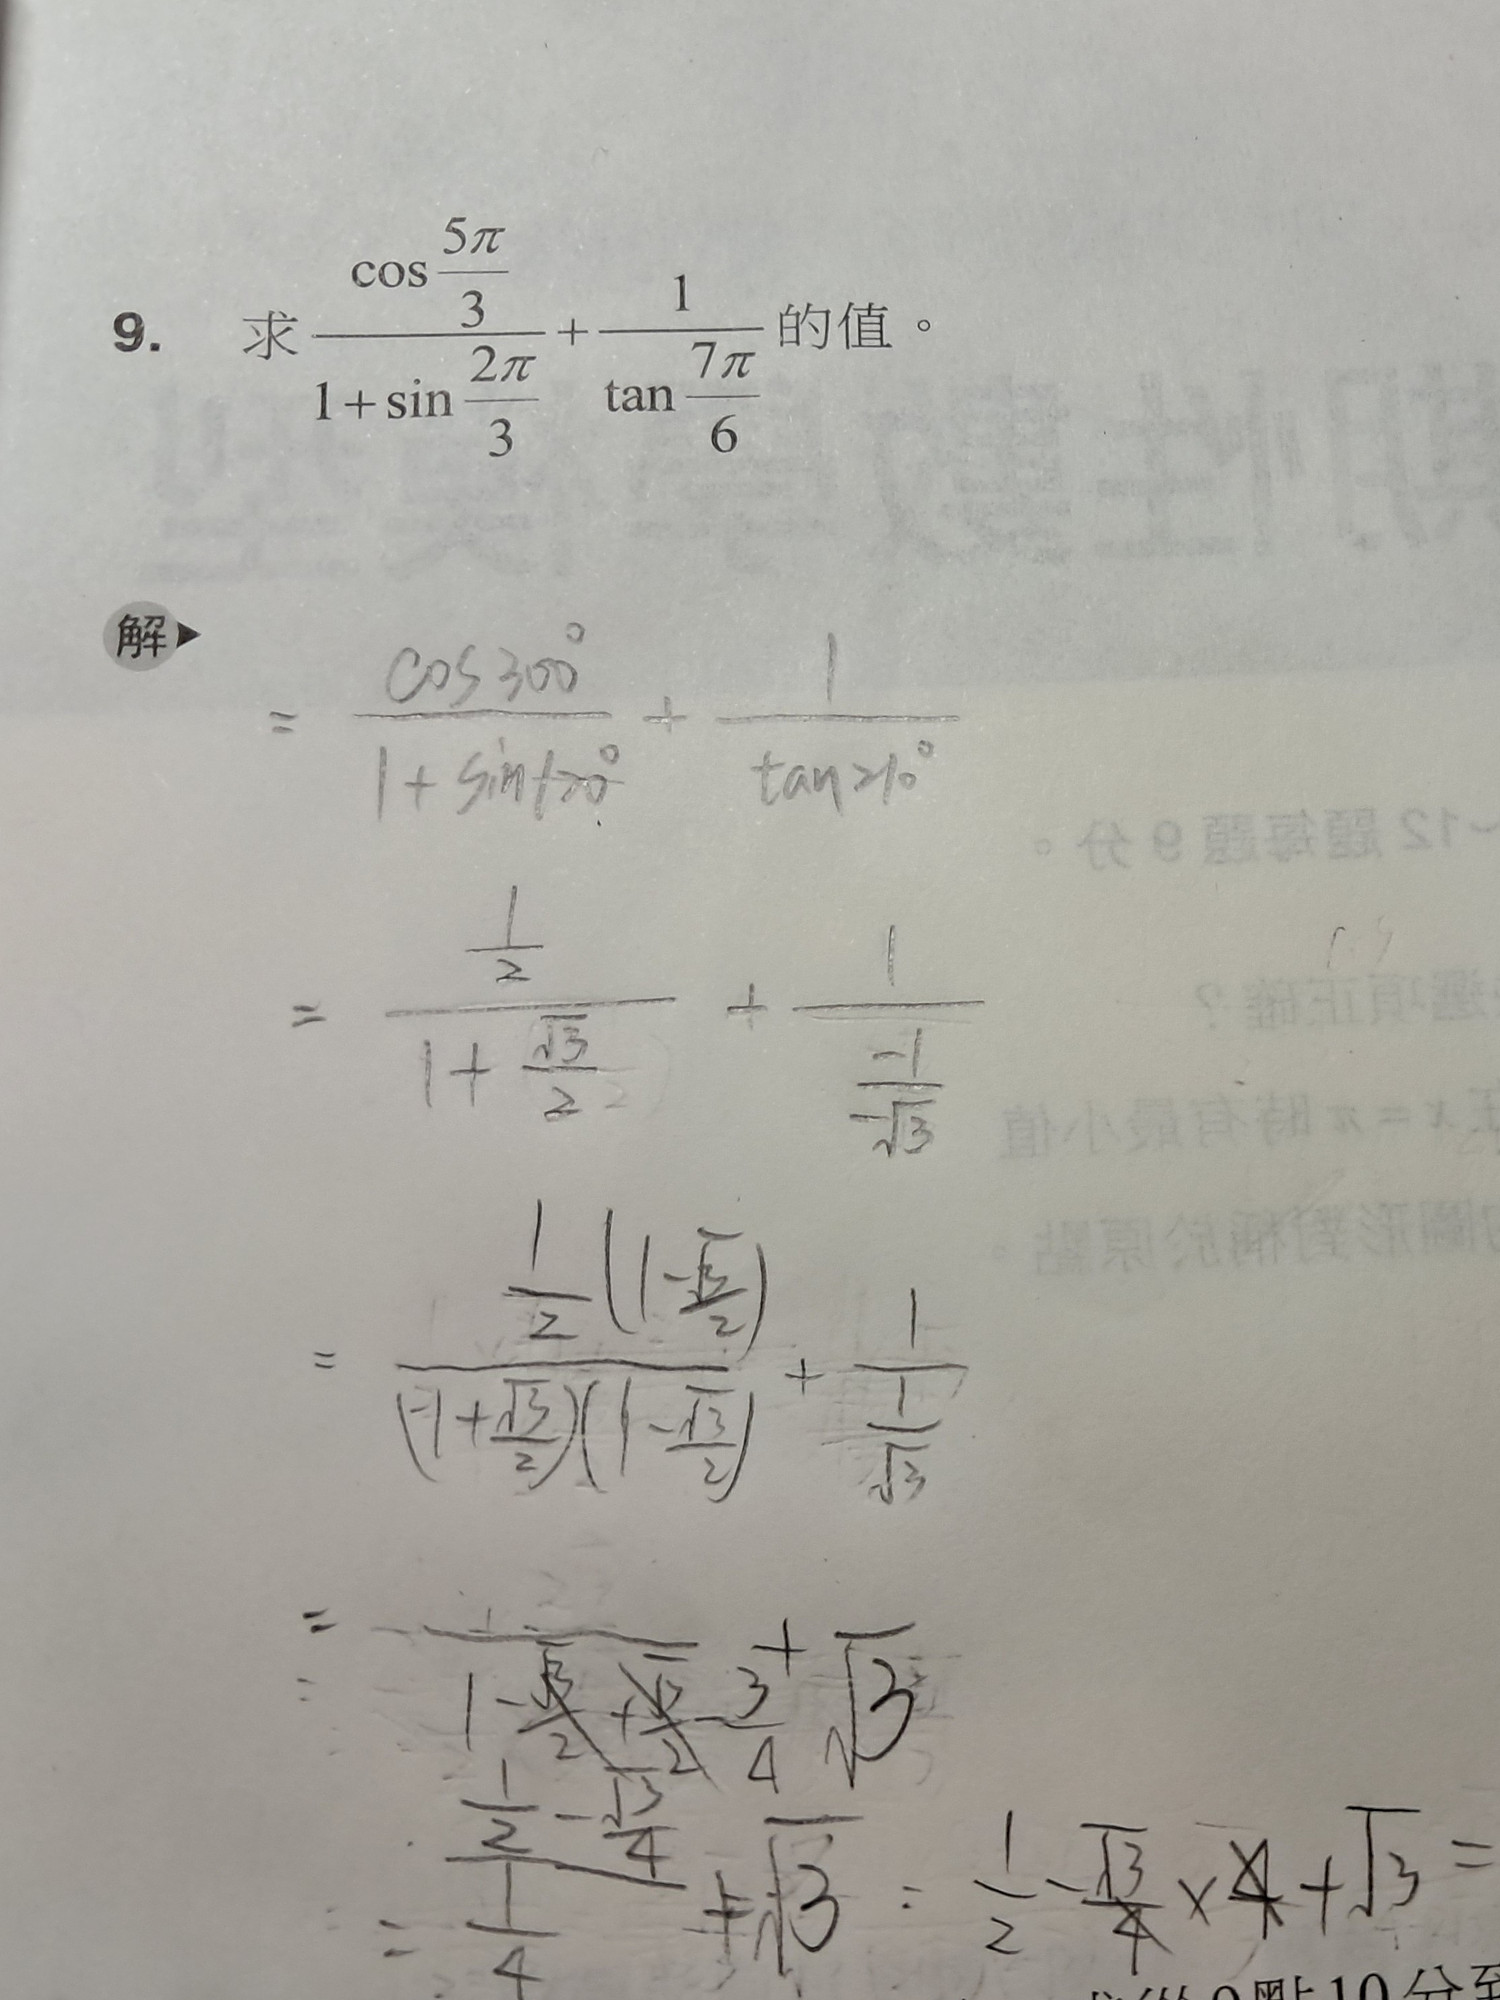 9. 求 \frac{\cos\frac{5π}{3}}{1+\sin\frac{2π}{3}} + \frac{1}{\tan\frac{7π}{6}} 的值。
解▶
= \frac{cos300°}{1+sin120°} + \frac{1}{tan210°}
= \frac{\frac{1}{2}}{1+\frac{√3}{2}} + \frac{1}{\frac{-1}{-√3}}
= \frac{\frac{1}{2}(1-\frac{√3}{2})}{(1+\frac{√3}{2})(1-\frac{√3}{2})} + \frac{1}{\frac{1}{√3}}
= \frac{}{1-\frac{√3}{2}+\frac{√3}{2}-\frac{3}{4}} + √3
= \frac{\frac{1}{2}-\frac{√3}{4}}{\frac{1}{4}} + √3 = \frac{1}{2}-\frac{√3}{4}×4+√3 =
~12 題每題 9 分。
選項正確？
x = π 時有最小值
圖形對稱於原點。
點10分到